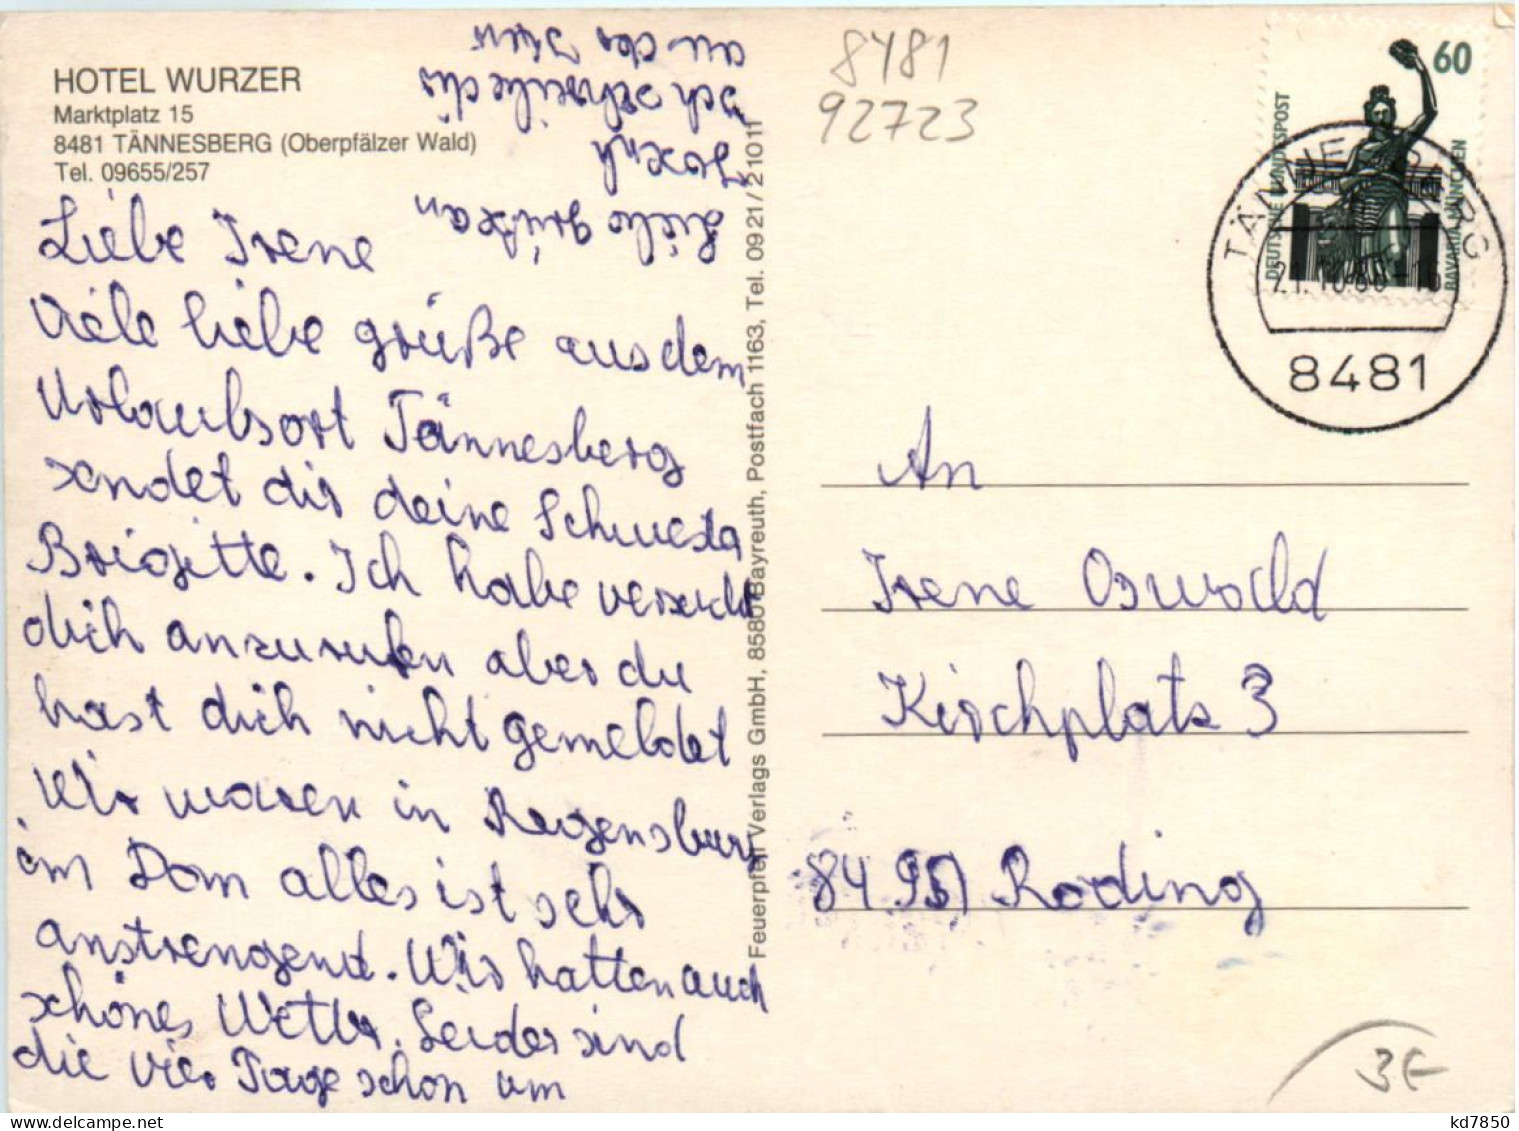 HOTEL WURZER
Marktplatz 15
8481 TÄNNESBERG (Oberpfälzer Wald)
Tel. 09655/257
Liebe Irene
Viele liebe grüße aus dem
Urlaubsort Tännesberg
sendet dir deine Schwester
Brigitte. Ich habe versucht
dich anzurufen aber du
hast dich nicht gemeldet
Wir waren in Regensburg
im Dom alles ist sehr
anstrengend. Wir hatten auch
schönes Wetter. Leider sind
die vier Tage schon um
ich schreibe dir
Feuerpfeil Verlags GmbH, 8580 Bayreuth, Postfach 1163, Tel. 0921/21011
8481
92723
60
DEUTSCHE BUNDESPOST
BAVARIA MÜNCHEN
TÄNNESBERG
8481
An
Irene Oswald
Kirchplatz 3
8495 Roding
3€
kd7850